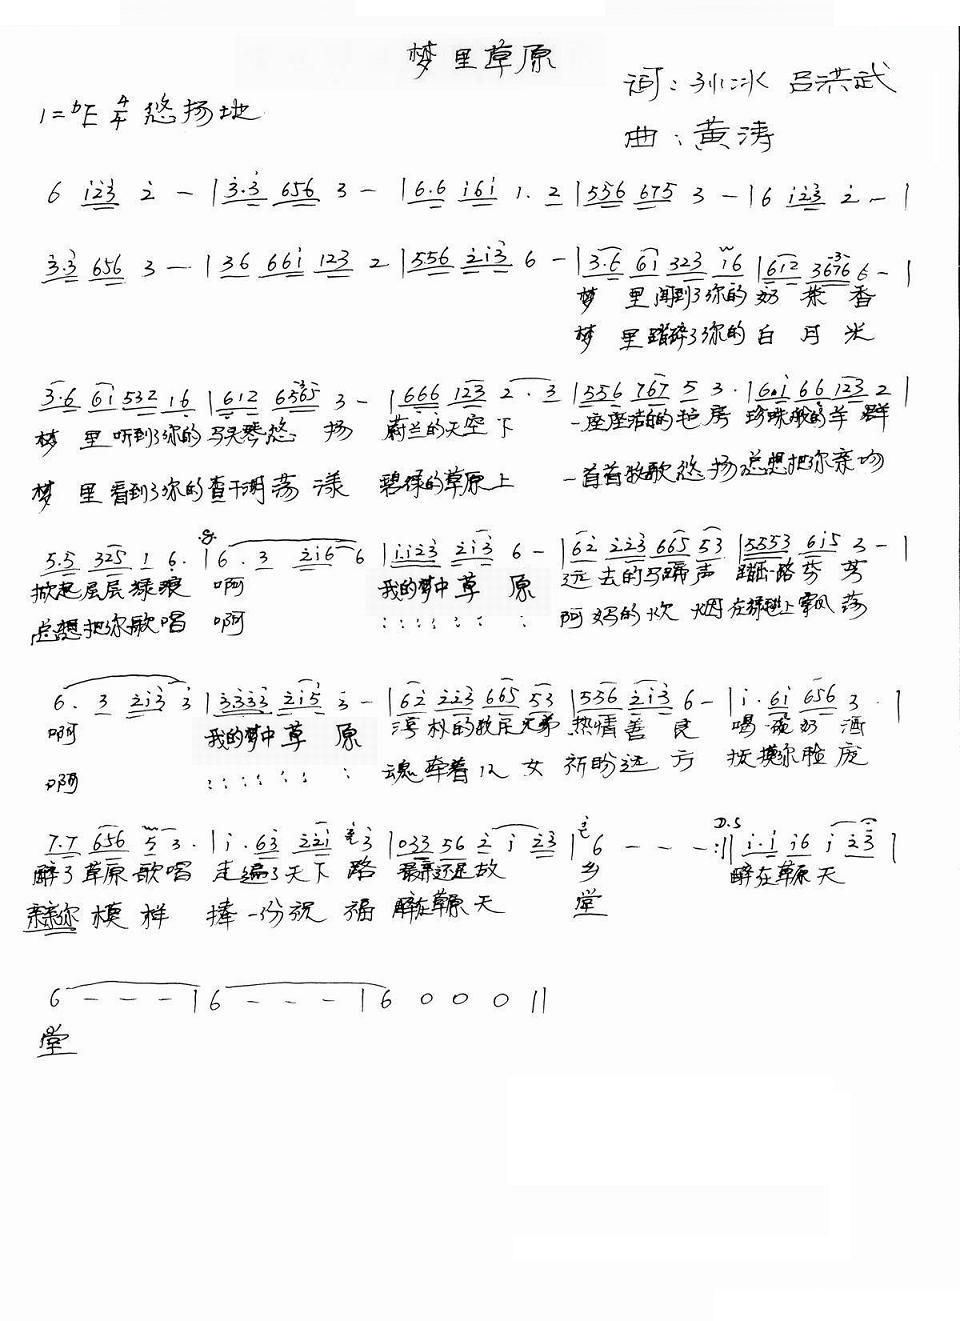 梦里草原
词：孙冰 吕洪武
1=bE 4/4 悠扬地
曲：黄涛
6 123 2 - | 3.3 656 3 - | 6.6 161 1. 2 | 556 675 3 - | 6 123 2 - |
3.3 656 3 - - | 36 661 123 2 | 556 213 6 - | 3.6 61 323 16 | 612 3676 6 - |
梦 里闻到了你的奶 茶 香
梦 里踏碎了你的白 月 光
3.6 61 532 16 | 612 6565 3 - | 666 123 2 . 3 | 556 767 5 3 . | 60.1 66 123 2 |
梦 里听到了你的马头琴悠 扬 蔚兰的天空下 一座座洁白的毡房 珍珠般的羊群
梦 里看到了你的查干湖荡漾 碧绿的草原上 一首首牧歌悠扬总想把你亲吻
5.5 325 1 6. | 6 . 3 216 6 | 1.123 213 6 - | 62 223 665 53 | 5553 615 3 - |
掀起层层绿浪 啊 我的梦中草 原 远去的马蹄声 踏出一路芬芳
总想把你歌唱 啊 : : : : : : : 阿妈的炊烟在绿毯上飘荡
6 . 3 213 3 | 3333 215 3 - | 62 223 665 53 | 556 213 6 - | 1 . 61 656 3 . |
啊 我的梦中草 原 淳朴的牧民兄弟热情善良 喝一碗奶酒
啊 : : : : : : : 魂牵着儿女祈盼远方 抚摸你脸庞
7.7 656 5 3 . | 1 . 63 221 3 | 033 56 2 1 23 | 6 - - - :|| D.S 1.1 16 1 23 |
醉了草原歌唱 走遍了天下路 最亲还是故 乡 醉在草原天
亲亲你模样 捧一份祝福 醉在草原天 堂
6 - - - | 6 - - - | 6 0 0 0 ||
堂